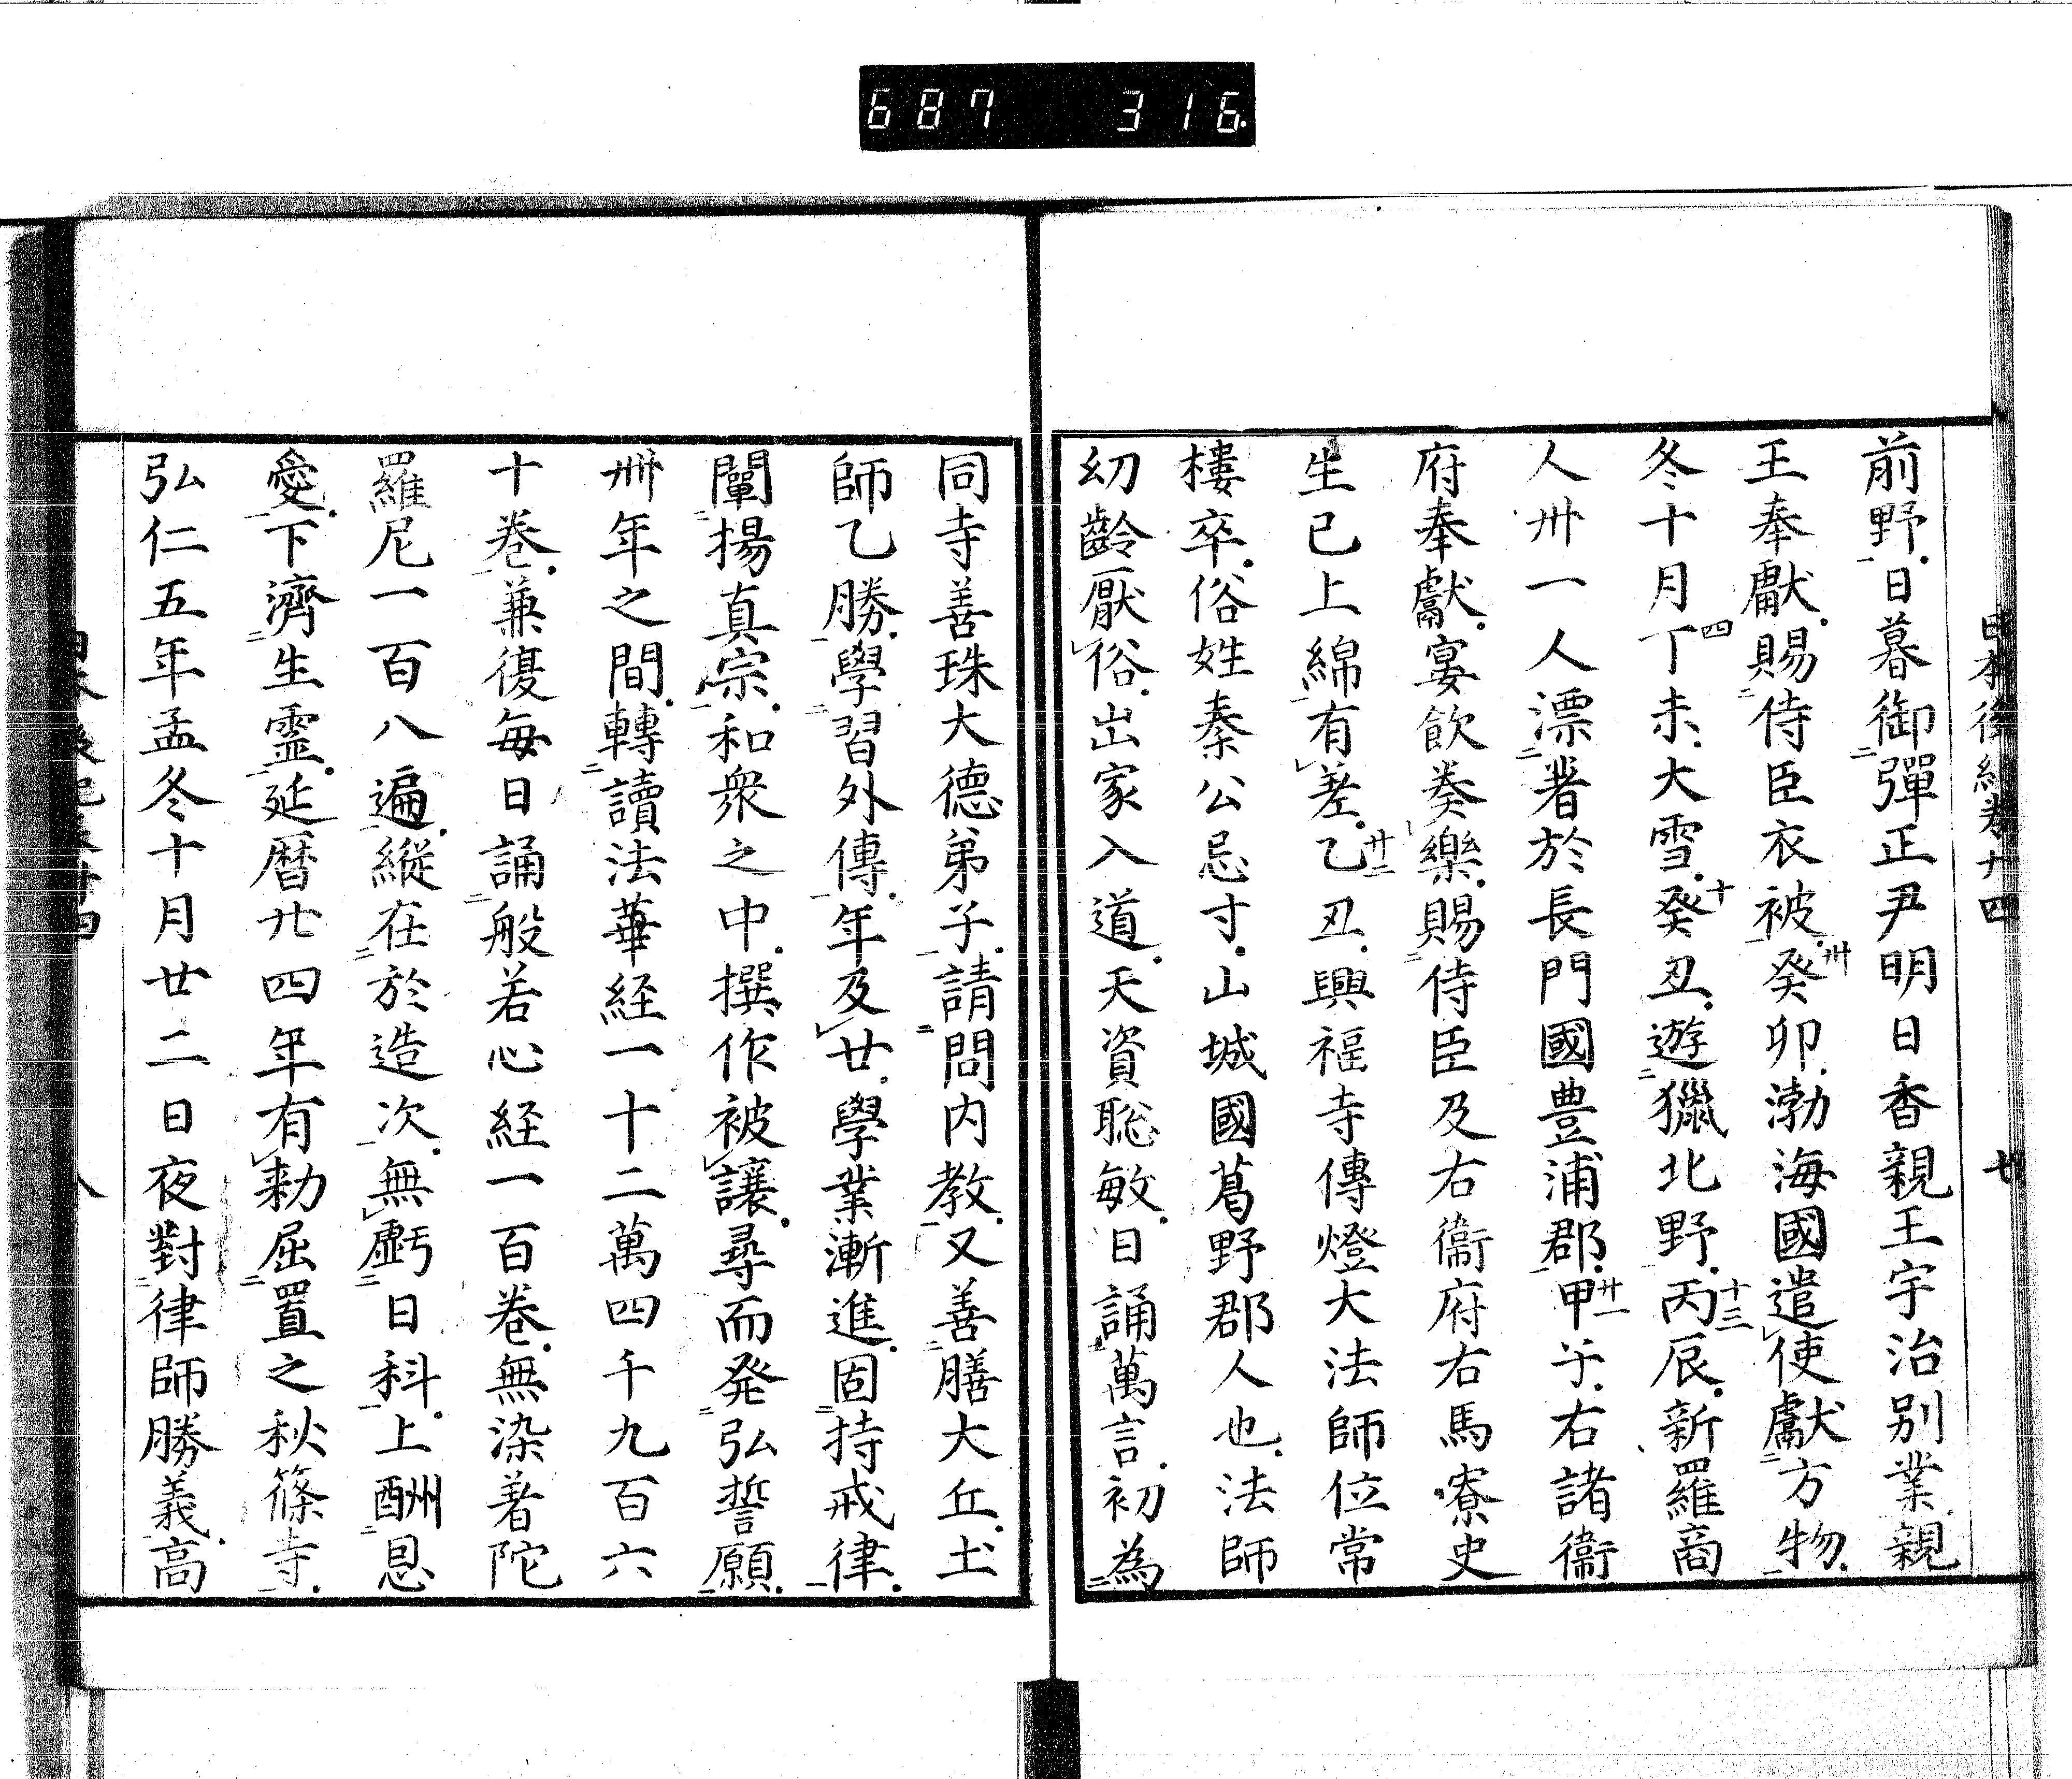 687 316
前野日暮御彈正尹明日香親王宇治別業親
王奉獻賜侍臣衣被癸卯渤海國遣使獻方物
冬十月丁未大雪癸丑遊獵北野丙辰新羅商
人卅一人漂著於長門國豊浦郡甲午右諸衞
府奉獻宴飲奏樂賜侍臣及右衞府右馬寮史
生已上綿有差乙丑興福寺傳燈大法師位常
樓卒俗姓秦公忌寸山城國葛野郡人也法師
幼齡厭俗出家入道天資聡敏日誦萬言初為
同寺善珠大德弟子請問内教又善膳大丘土
師乙勝學習外傳年及廿學業漸進固持戒律
闡揚真宗和衆之中撰作被讓尋而発弘誓願
卅年之間轉讀法華経一十二萬四千九百六
十卷兼復每日誦般若心経一百卷無染著陀
羅尼一百八遍縱在於造次無虧日科上酬恩
愛下濟生霊延暦廿四年有勅屈置之秋篠寺
弘仁五年孟冬十月廿二日夜對律師勝義高